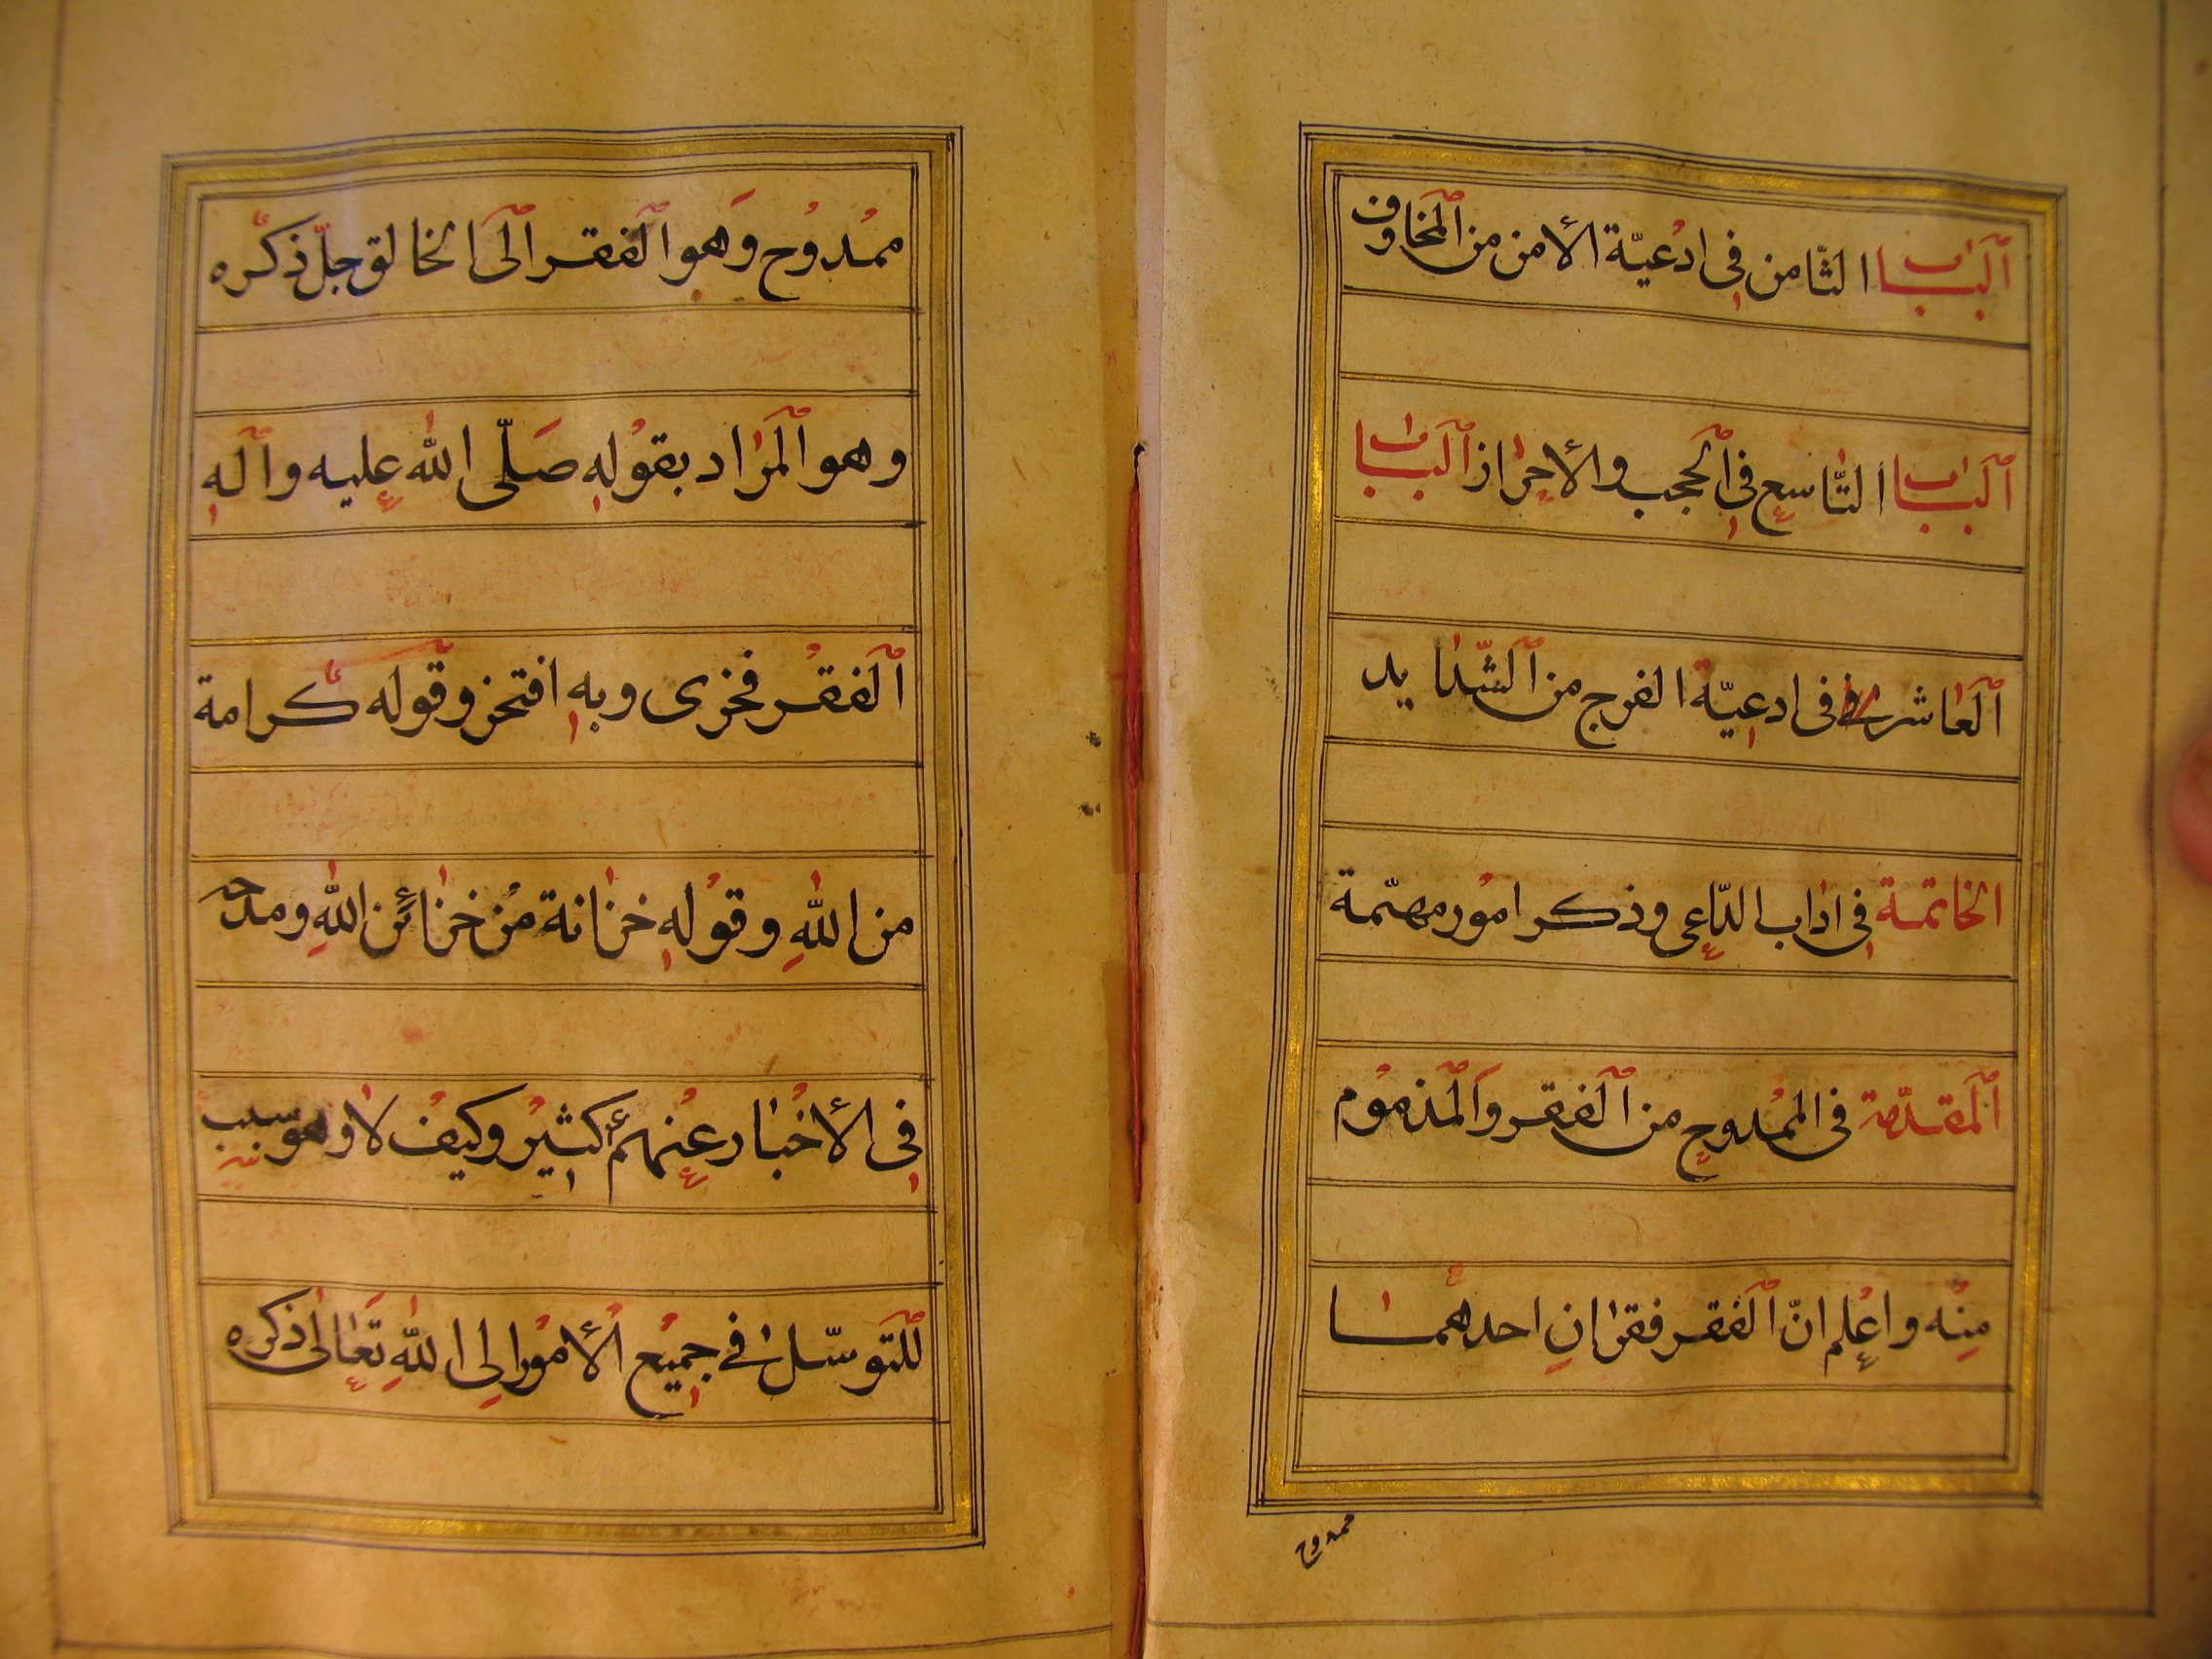 الباب الثّامن فى ادعيّة الأمن من المخاوف
الباب التّاسع فى الحجب والأحراز الباب
العاشر فى ادعيّة الفرج من الشّدايد
الخاتمة فى اداب الدّاعى وذكر امور مهمّة
المقدّمة فى الممدوح من الفقر والمذموم
منه واعلم انّ الفقر فقرانِ احدهما
ممدوح
ممدوح وهو الفقر الى الخالق جلّ ذكره
وهو المراد بقوله صلّى الله عليه واله
الفقر فخرى وبه افتخر وقوله كرامة
من اللهِ وقوله خزانة من خزائن اللهِ ومدحه
فى الأخبار عنهم كثير وكيف لا وهو سبب
للتوسّل فى جميع الأمور الى اللهِ تعالى ذكره